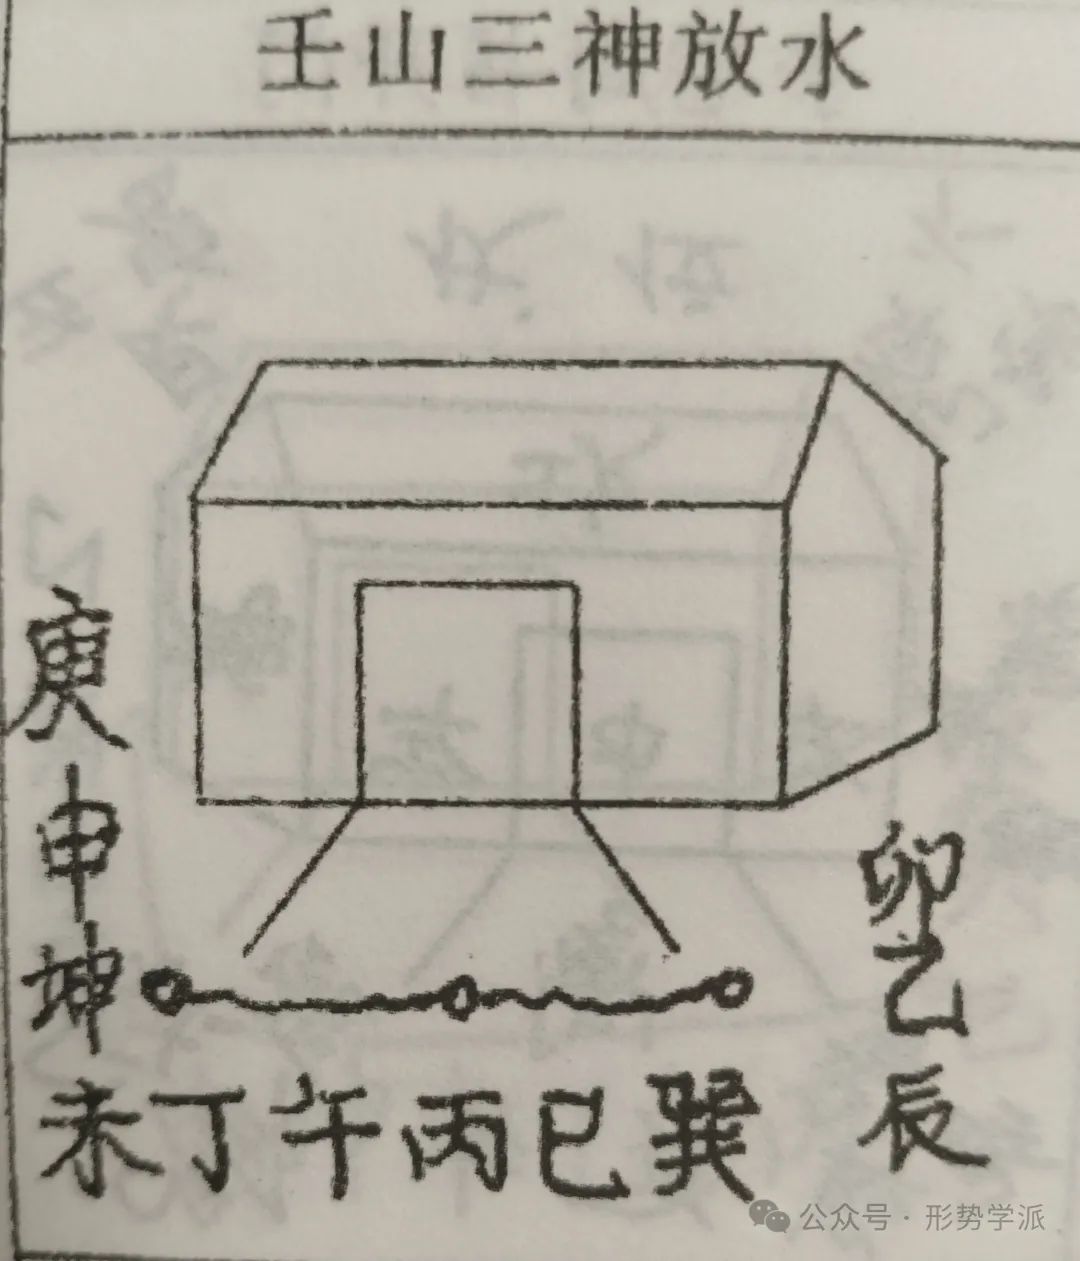 壬山三神放水
庚
申
坤
卯
乙
辰
未丁午丙巳巽
公众号·形势学派